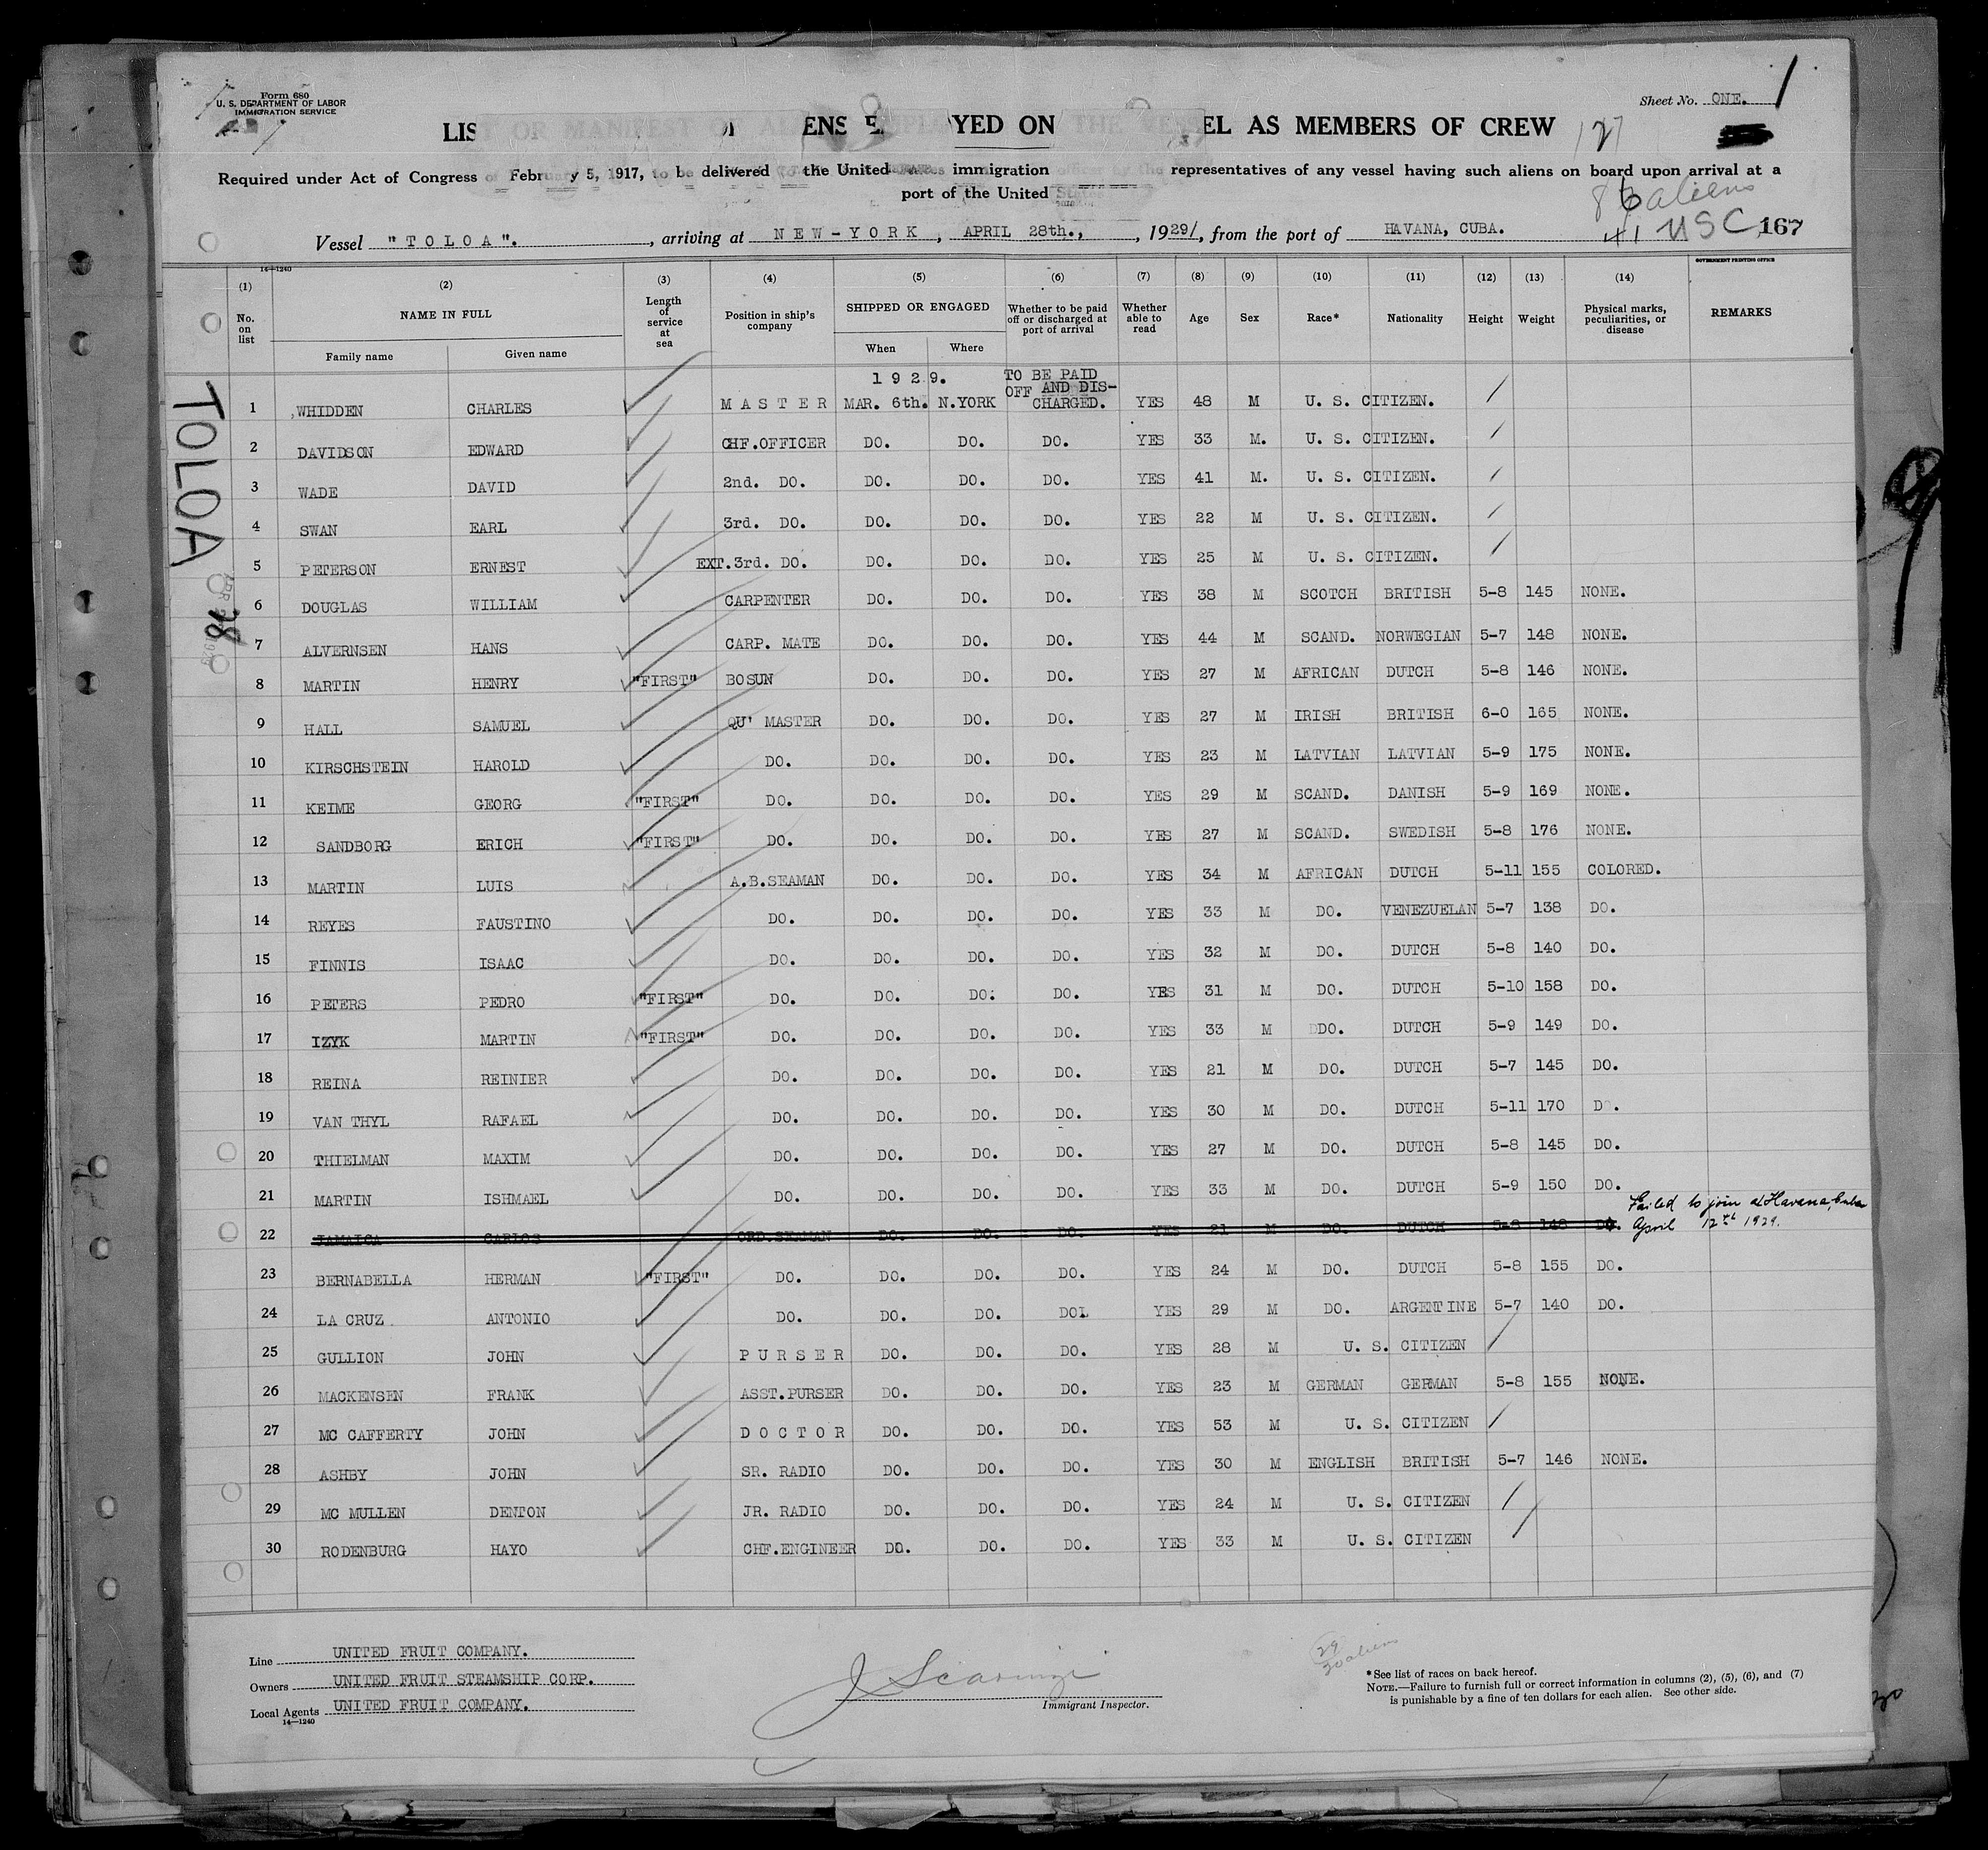 Form 680
U. S. DEPARTMENT OF LABOR
IMMIGRATION SERVICE
Sheet No. ONE. 1
LIST OR MANIFEST OF ALIENS EMPLOYED ON THE VESSEL AS MEMBERS OF CREW
127
Required under Act of Congress of February 5, 1917, to be delivered to the United States immigration officer by the representatives of any vessel having such aliens on board upon arrival at a
port of the United States
86 aliens
41 USC 167
Vessel "TOLOA"., arriving at NEW-YORK, APRIL 28th., 1929, from the port of HAVANA, CUBA.
14—1240
GOVERNMENT PRINTING OFFICE
(1) No. on list (2) NAME IN FULL Family name Given name (3) Length of service at sea (4) Position in ship's company (5) SHIPPED OR ENGAGED When Where (6) Whether to be paid off or discharged at port of arrival (7) Whether able to read (8) Age (9) Sex (10) Race* (11) Nationality (12) Height (13) Weight (14) Physical marks, peculiarities, or disease REMARKS
TOLOA
28
1929. TO BE PAID OFF AND DIS-
1 WHIDDEN CHARLES MASTER MAR. 6th. N.YORK CHARGED. YES 48 M U. S. CITIZEN.
2 DAVIDSON EDWARD CHF.OFFICER DO. DO. DO. YES 33 M. U. S. CITIZEN.
3 WADE DAVID 2nd. DO. DO. DO. DO. YES 41 M. U. S. CITIZEN.
4 SWAN EARL 3rd. DO. DO. DO. DO. YES 22 M U. S. CITIZEN.
5 PETERSON ERNEST EXT.3rd. DO. DO. DO. DO. YES 25 M U. S. CITIZEN.
6 DOUGLAS WILLIAM CARPENTER DO. DO. DO. YES 38 M SCOTCH BRITISH 5-8 145 NONE.
7 ALVERNSEN HANS CARP. MATE DO. DO. DO. YES 44 M SCAND. NORWEGIAN 5-7 148 NONE.
8 MARTIN HENRY "FIRST" BOSUN DO. DO. DO. YES 27 M AFRICAN DUTCH 5-8 146 NONE.
9 HALL SAMUEL QU' MASTER DO. DO. DO. YES 27 M IRISH BRITISH 6-0 165 NONE.
10 KIRSCHSTEIN HAROLD DO. DO. DO. DO. YES 23 M LATVIAN LATVIAN 5-9 175 NONE.
11 KEIME GEORG "FIRST" DO. DO. DO. DO. YES 29 M SCAND. DANISH 5-9 169 NONE.
12 SANDBORG ERICH "FIRST" DO. DO. DO. DO. YES 27 M SCAND. SWEDISH 5-8 176 NONE.
13 MARTIN LUIS A.B.SEAMAN DO. DO. DO. YES 34 M AFRICAN DUTCH 5-11 155 COLORED.
14 REYES FAUSTINO DO. DO. DO. DO. YES 33 M DO. VENEZUELAN 5-7 138 DO.
15 FINNIS ISAAC DO. DO. DO. DO. YES 32 M DO. DUTCH 5-8 140 DO.
16 PETERS PEDRO "FIRST" DO. DO. DO. DO. YES 31 M DO. DUTCH 5-10 158 DO.
17 IZYK MARTIN "FIRST" DO. DO. DO. DO. YES 33 M DDO. DUTCH 5-9 149 DO.
18 REINA REINIER DO. DO. DO. DO. YES 21 M DO. DUTCH 5-7 145 DO.
19 VAN THYL RAFAEL DO. DO. DO. DO. YES 30 M DO. DUTCH 5-11 170 DO.
20 THIELMAN MAXIM DO. DO. DO. DO. YES 27 M DO. DUTCH 5-8 145 DO.
21 MARTIN ISHMAEL DO. DO. DO. DO. YES 33 M DO. DUTCH 5-9 150 DO.
22 JAMAICA CARLOS ORD.SEAMAN DO. DO. DO. YES 21 M DO. DUTCH 5-8 148 DO. Failed to join at Havana, Cuba
April 12th 1929.
23 BERNABELLA HERMAN "FIRST" DO. DO. DO. DO. YES 24 M DO. DUTCH 5-8 155 DO.
24 LA CRUZ ANTONIO DO. DO. DO. DOL YES 29 M DO. ARGENTINE 5-7 140 DO.
25 GULLION JOHN PURSER DO. DO. DO. YES 28 M U. S. CITIZEN
26 MACKENSEN FRANK ASST.PURSER DO. DO. DO. YES 23 M GERMAN GERMAN 5-8 155 NONE.
27 MC CAFFERTY JOHN DOCTOR DO. DO. DO. YES 53 M U. S. CITIZEN
28 ASHBY JOHN SR. RADIO DO. DO. DO. YES 30 M ENGLISH BRITISH 5-7 146 NONE.
29 MC MULLEN DENTON JR. RADIO DO. DO. DO. YES 24 M U. S. CITIZEN
30 RODENBURG HAYO CHF.ENGINEER DO. DO. DO. YES 33 M U. S. CITIZEN
Line UNITED FRUIT COMPANY.
Owners UNITED FRUIT STEAMSHIP CORP.
Local Agents UNITED FRUIT COMPANY.
14—1240
Immigrant Inspector.
29
20 aliens
*See list of races on back hereof.
NOTE.—Failure to furnish full or correct information in columns (2), (5), (6), and (7)
is punishable by a fine of ten dollars for each alien. See other side.